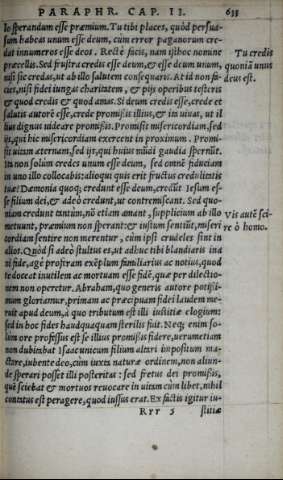 PARAPHR. CAP. II. 633
lo sperandum esse præmium. Tu tibi places, quòd persua-
sum habeas unum esse deum, cùm error paganorum cre-
dat innumeros esse deos. Rectè facis, nam isthoc nomine
præcellis. Sed frustra credis esse deum, & esse deum unum,
nisi sic credas, ut ab illo salutem consequaris. At id non fa-
cies, nisi fidei iungas charitatem, & pijs operibus testeris
& quod credis & quod amas. Si deum credis esse, crede et
salutis autorē esse, crede promissis illius, & ita uiuas, ut il
lius dignus uideare promissis. Promisit misericordiam, sed
ijs, qui hic misericordiam exercent in proximum. Promi-
sit uitam æternam, sed ijs, qui huius mūdi gaudia spernūt.
Ita non solùm credes unum esse deum, sed omnē fiduciam
in uno illo collocabis: alioqui quis erit fructus credulitatis
tuæ? Dæmonia quoq; credunt esse deum, credūt Iesum es-
se filium dei, & adeò credunt, ut contremiscant. Sed quo-
niam credunt tantùm, nō etiam amant, supplicium ab illo
metuunt, præmium non sperant: & iustum sentiūt, miseri
cordiam sentire non merentur, cùm ipsi crudeles sint in
alios. Quòd si adeò stultus es, ut adhuc tibi blandiaris ina
ni fide, age proferam exēplum familiarius ac notius, quod
te doceat inutilem ac mortuam esse fidē, quæ per dilectio-
nem non operetur. Abraham, quo generis autore potissi-
mum gloriamur, primam ac præcipuam fidei laudem me-
ruit apud deum, à quo tributum est illi iustitiæ elogium:
sed in hoc fides haudquaquam sterilis fuit. Neq; enim so-
lùm ore professus est se illius promissis fidere, uerumetiam
non dubitabat Isaacunicum filium altari impositum ma-
ctare, iubente deo, cùm iuxta naturæ ordinem, non aliun-
de sperari posset illi posteritas: sed fretus dei promissis,
quē sciebat & mortuos reuocare in uitam cùm libet, nihil
contatus est peragere, quod iussus erat. Ex factis igitur iu-
Rrr 5 stitiæ
Tu credis
quoniā unus
deus est.
Vis autē sci-
re ô homo.